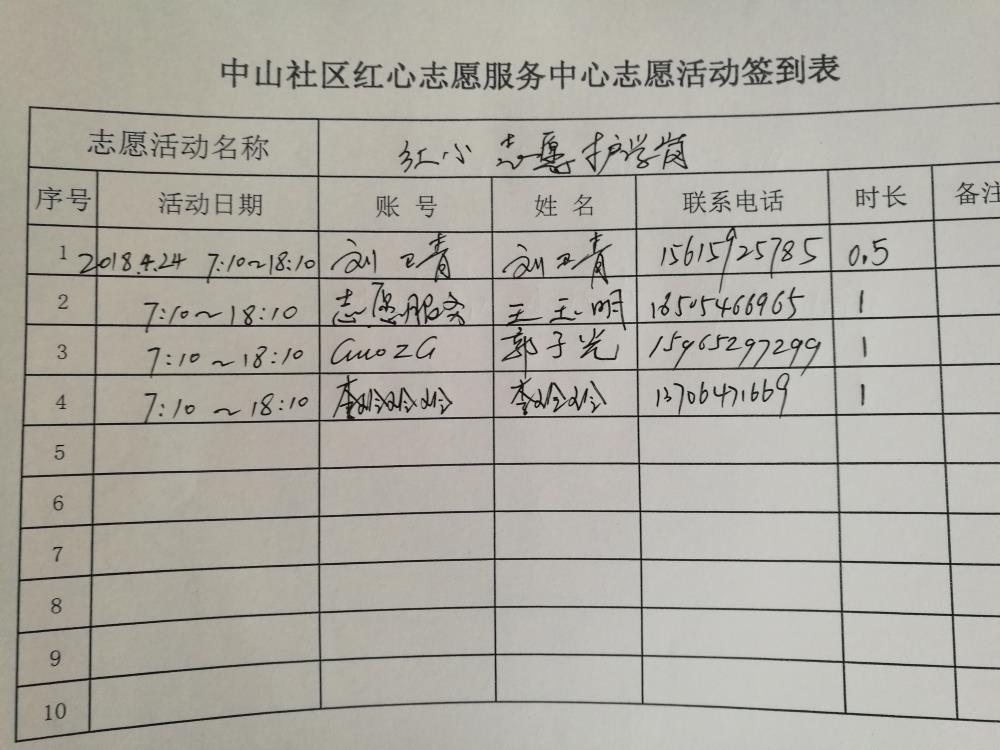 中山社区红心志愿服务中心志愿活动签到表
志愿活动名称 红小志愿护学岗
序号 活动日期 账号 姓名 联系电话 时长 备注
1 2018.4.24 7:10~18:10 刘卫青 刘卫青 15615925785 0.5
2 7:10~18:10 志愿服务 王玉明 18505466965 1
3 7:10~18:10 GuoZG 郭子光 15965297299 1
4 7:10~18:10 李玲玲 13706471669 1
5
6
7
8
9
10